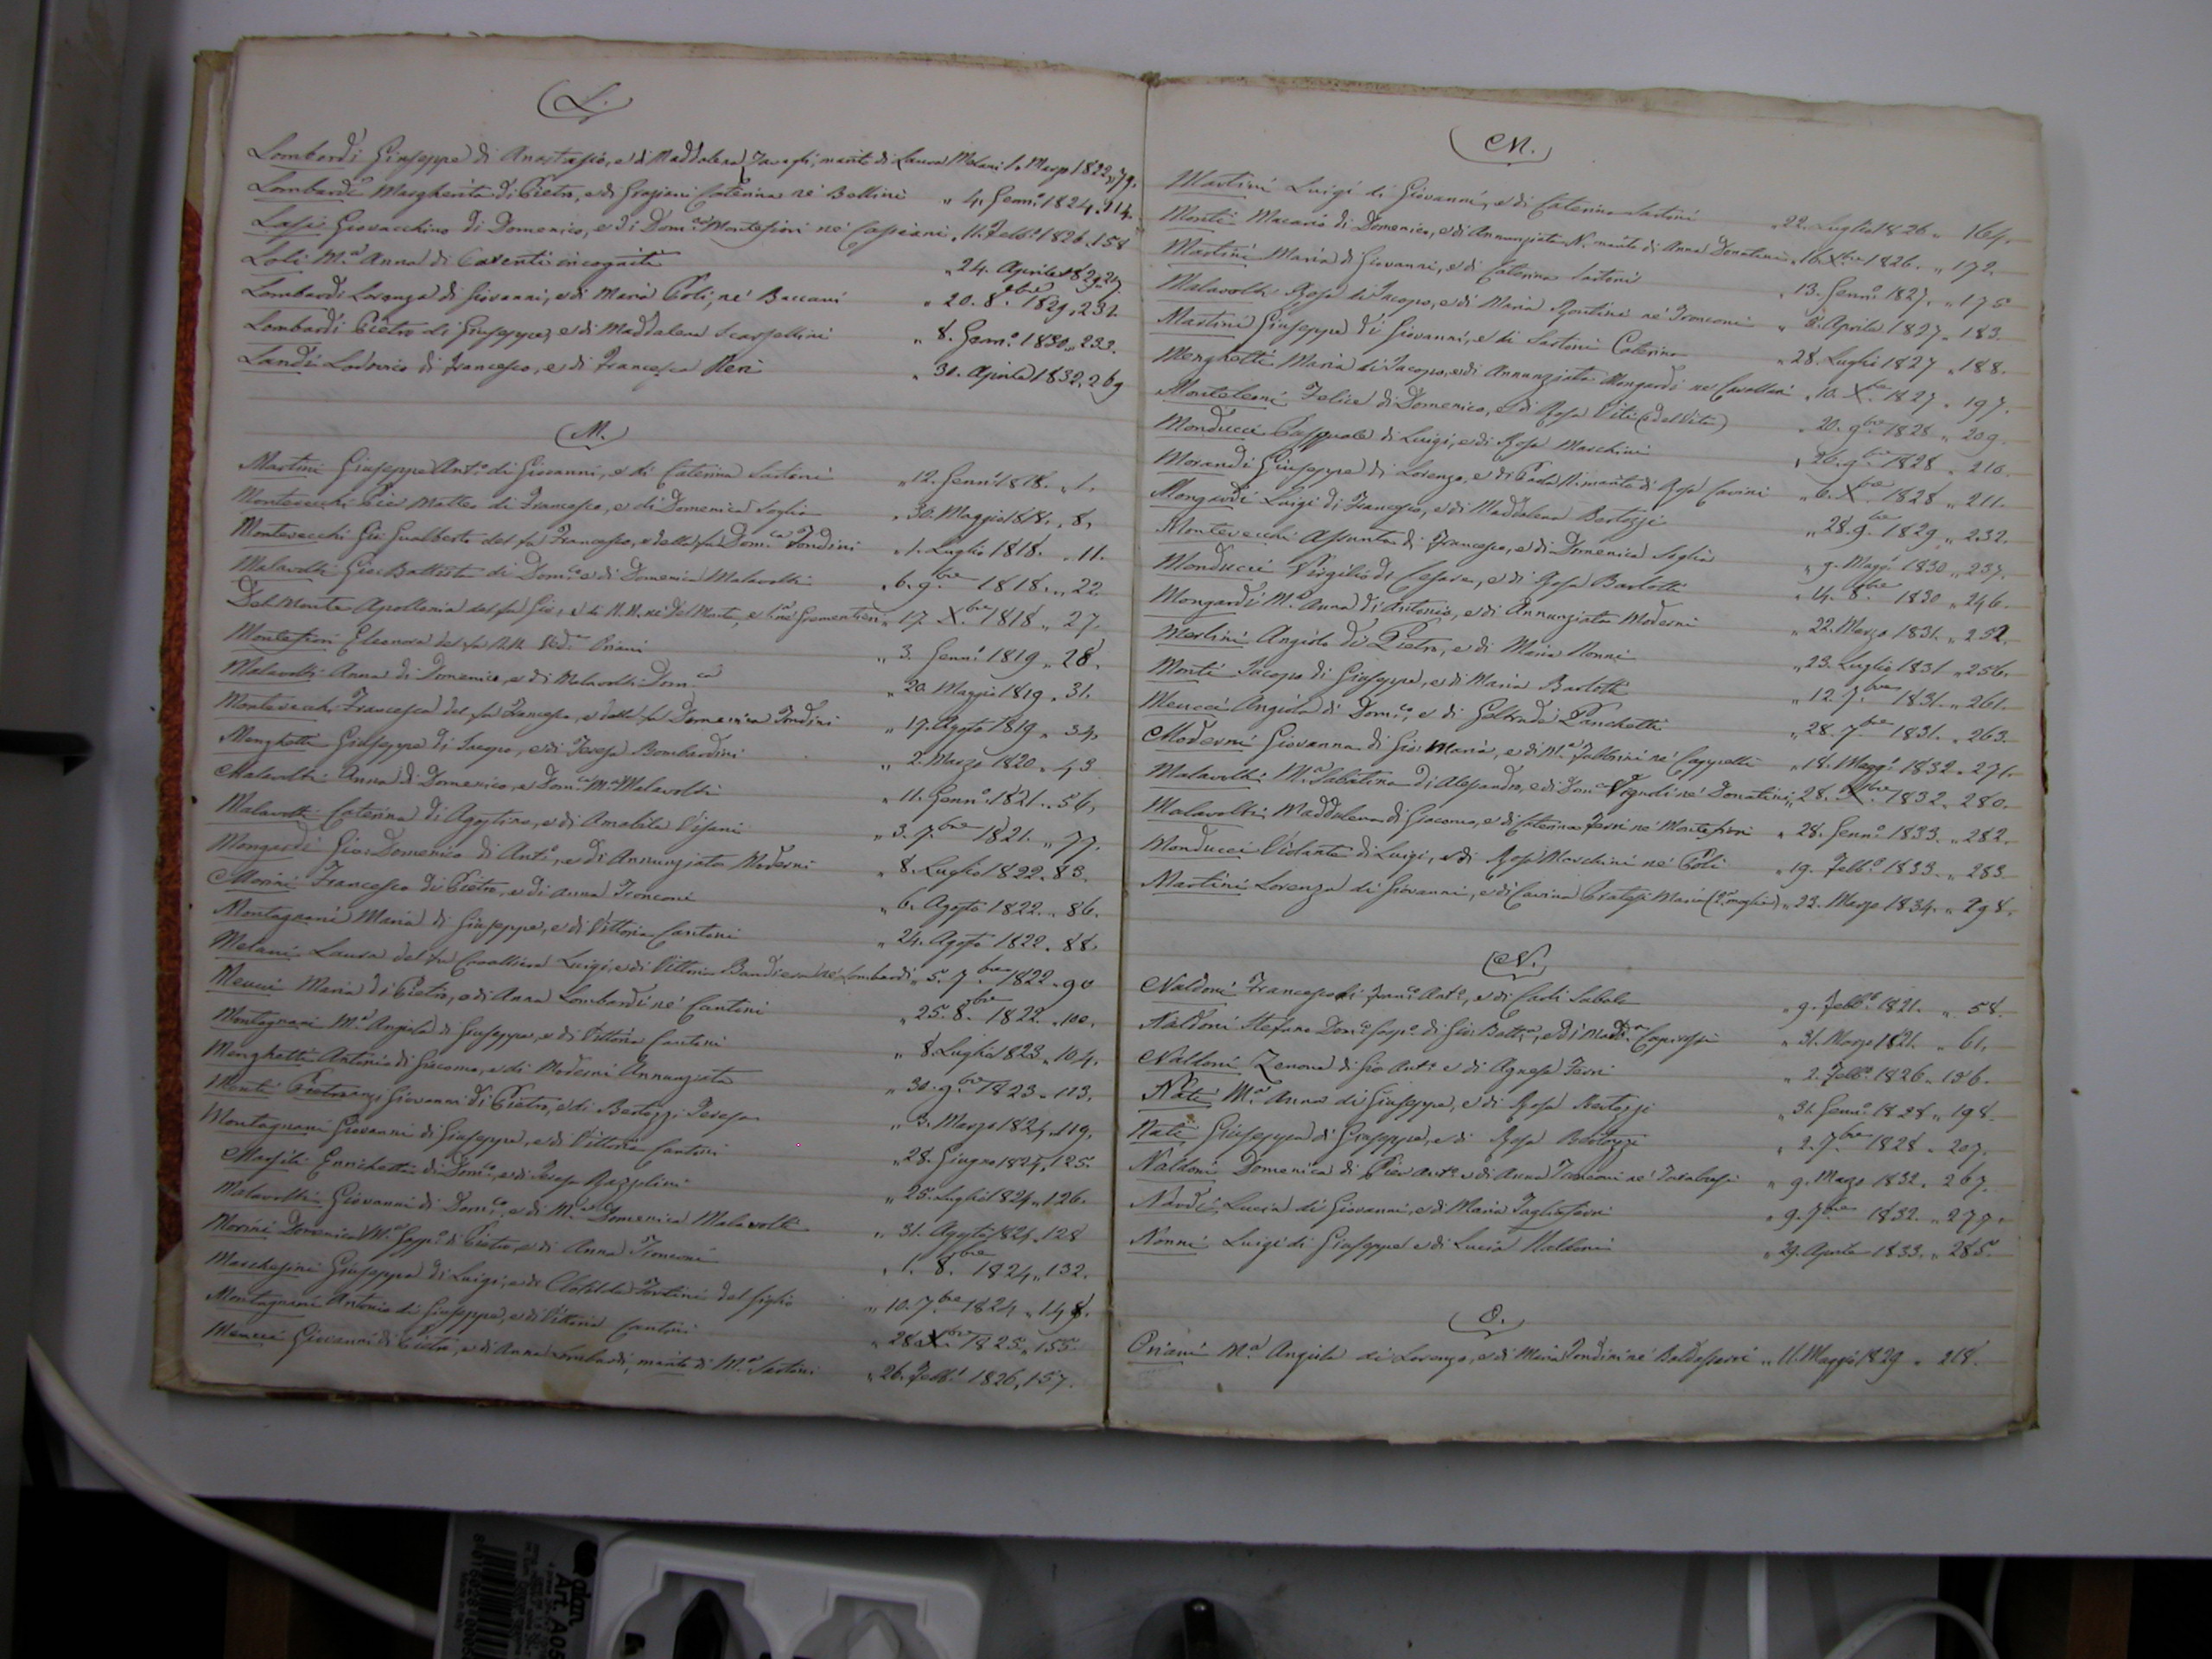 L.
Lombardi Giuseppe di Anastasio, e di Maddalena marito di Laura Melani 1. Marzo 1822 „ 79.
Lombardi Margherita di Pietro, e di Graziani Caterina ne' Bellini „ 4. Genn.o 1824. 114.
Lassi Giovacchino di Domenico, e di Dom.ca Montefiori ne' Cassiani „ 11. Febb.o 1826. 158
Loli M.a Anna di Parenti incogniti „ 24. Aprile 1829
Lombardi Lorenza di Giovanni, e di Maria Poli, ne' Baccani „ 20. 8.bre 1829 „ 231.
Lombardi Pietro di Giuseppe, e di Maddalena Scarpellini „ 8. Genn.o 1830 „ 233.
Landi Lodovico di Francesco, e di Francesca Neri „ 30. Aprile 1832. 269
M.
Martini Giuseppe Ant.o di Giovanni, e di Caterina Sartoni „ 12. Genn.o 1818. „ 1.
Montevecchi Pier Matteo di Francesco, e di Domenica Soglia „ 30. Maggio 1818. „ 8.
Montevecchi Gio: Gualberto del fu Francesco, e della fu Dom.ca Tondini „ 1. Luglio 1818. „ 11.
Malavolti Gio: Battista di Dom.co e di Domenica Malavolti „ 6. 9.bre 1818. „ 22.
Del Monte Apollonia del fu Gio:, e di N.N. ne' Del Monte, e „ 17. X.bre 1818 „ 27.
Montefiori Eleonora del fu N.N. Ved.a Oriani „ 3. Genn.o 1819 „ 28.
Malavolti Anna di Domenico, e di Malavolti Dom.ca „ 20. Maggio 1819 „ 31.
Montevecchi Francesca del fu Francesco, e della fu Domenica Tondini „ 17. Agosto 1819 „ 34.
Menghetti Giuseppe di Jacopo, e di Teresa Bombardini „ 2. Marzo 1820 „ 43
Malavolti Anna di Domenico, e Dom.ca M.a Malavolti „ 11. Genn.o 1821. „ 56.
Malavolti Caterina di Agostino, e di Amabile Visani „ 3. 7.bre 1821. „ 77.
Mongardi Gio: Domenico di Ant.o, e di Annunziata Moderni „ 8. Luglio 1822. 83.
Morini Francesco di Pietro, e di Anna Tronconi „ 6. Agosto 1822. „ 86.
Montagnani Maria di Giuseppe, e di Vittoria Cantoni „ 24. Agosto 1822. 88.
Melani Laura del fu Cavalliere Luigi, e di Vittoria Bandiera ne' Lombardi „ 5. 7.bre 1822 „ 90
Meucci Maria di Pietro, e di Anna Lombardi ne' Cantini „ 25. 8.bre 1822. „ 100.
Montagnani M.a Angiola di Giuseppe, e di Vittoria Cantoni „ 8. Luglio 1823 „ 104.
Menghetti Antonio di Giacomo, e di Moderni Annunziata „ 30. 9.bre 1823 „ 113.
Monti Giovanni di Pietro, e di Bertozzi Teresa „ 3. Marzo 1824. 119.
Montagnani Giovanni di Giuseppe, e di Vittoria Cantini „ 28. Giugno 1824. 125.
Marsili Enrichetta di Dom.co, e di Teresa Razzolini „ 25. Luglio 1824 „ 126.
Malavolti Giovanni di Dom.co, e di M.a Domenica Malavolti „ 31. Agosto 1824. 128
Morini Domenica M.a Gasp.a di Pietro, e di Anna Tronconi „ 1. 8.bre 1824 „ 132.
Marchesini Giuseppe di Luigi, e di Clotilde Fortini del figlio „ 10. 7.bre 1824 „ 148.
Montagnani Antonio di Giuseppe, e di Vittoria Cantini „ 28. X.bre 1825 „ 155.
Meucci Giovanni di Pietro, e di Anna Lombardi, marito di M.a Sartoni „ 26. Febb.o 1826. 157.
M.
Martini Luigi di Giovanni, e di Caterina Sartoni „ 22. Luglio 1826 „ 164.
Monti Macario di Domenico, e di Annunziata N. marito di Anna Donatini „ 16. X.bre 1826. „ 172.
Martini Maria di Giovanni, e di Caterina Sartoni „ 13. Genn.o 1827. „ 175
Malavolti Rosa di Jacopo, e di Maria Rontini ne' Tronconi „ 8. Aprile 1827 „ 183.
Martini Giuseppe di Giovanni, e di Sartoni Caterina „ 28. Luglio 1827 „ 188.
Menghetti Maria di Jacopo, e di Annunziata Mongardi ne' Cavallari „ 10. X.bre 1827 „ 197.
Monteleoni Felice di Domenico, e di Rosa Viti (del Vita) „ 20. 9.bre 1828 „ 209.
Monducci Pasquale di Luigi, e di Rosa Maschini „ 26. 9.bre 1828 „ 210.
Morandi Giuseppe di Lorenzo, e di Paola N. marito di Rosa Cavini „ 6. X.bre 1828 „ 211.
Mongardi Luigi di Francesco, e di Maddalena Bertozzi „ 28. 9.bre 1829 „ 232.
Montevecchi Assunta di Francesco, e di Domenica Soglia „ 9. Magg.o 1830 „ 237.
Monducci Virgilio di Cesare, e di Rosa Barlotti „ 4. 8.bre 1830 „ 246.
Mongardi M.a Anna di Antonio, e di Annunziata Moderni „ 22. Marzo 1831. „ 252.
Merlini Angiolo di Pietro, e di Maria Nonni „ 23. Luglio 1831 „ 256.
Monti Jacopo di Giuseppe, e di Maria Barlotti „ 12. 7.bre 1831. „ 261.
Meucci Angiolo di Dom.co, e di Geltrude Panchetti „ 28. 7.bre 1831. „ 263.
Moderni Giovanna di Gio: Maria, e di M.a Fabbrini ne' Cappelli „ 18. Magg.o 1832 „ 271.
Malavolti M.a Sabatina di Alessandro, e di Dom.ca Vignoli ne' Donatini „ 28. X.bre 1832. 280.
Malavolti Maddalena di Giacomo, e di Caterina Ferri ne' Montefiori „ 28. Genn.o 1833. „ 282.
Monducci Violante di Luigi, e di Rosa Maschini ne' Poli „ 19. Febb.o 1833. „ 283.
Martini Lorenzo di Giovanni, e di Cavina Maria (2.a moglie) „ 23. Marzo 1834. „ 298.
N.
Naldoni Francesco di Fran.co Ant.o, e di Carli Isabella „ 9. Febb.o 1821. „ 58.
Naldoni Stefano Dom.co Gasp.o di Gio: Batt.a, e di Madd.a „ 31. Marzo 1821. „ 61.
Naldoni Zenone di Gio: Ant.o e di Agnese Ferri „ 2. Febb.o 1826 „ 156.
Nati M.a Anna di Giuseppe, e di Rosa Bertozzi „ 31. Genn.o 1828 „ 198.
Nati Giuseppe di Giuseppe, e di Rosa Bertozzi „ 2. 7.bre 1828 „ 207.
Naldoni Domenica di Pier Ant.o e di Anna Tronconi ne' „ 9. Marzo 1832. 267.
Nardi Lucia di Giovanni, e di Maria Tagliaferri „ 9. 7.bre 1832. „ 277.
Nonni Luigi di Giuseppe e di Lucia Naldoni „ 29. Aprile 1833. „ 285.
O.
Oriani M.a Angiola di Lorenzo, e di Maria Tondini ne' Baldassarri „ 11. Maggio 1829 „ 218.